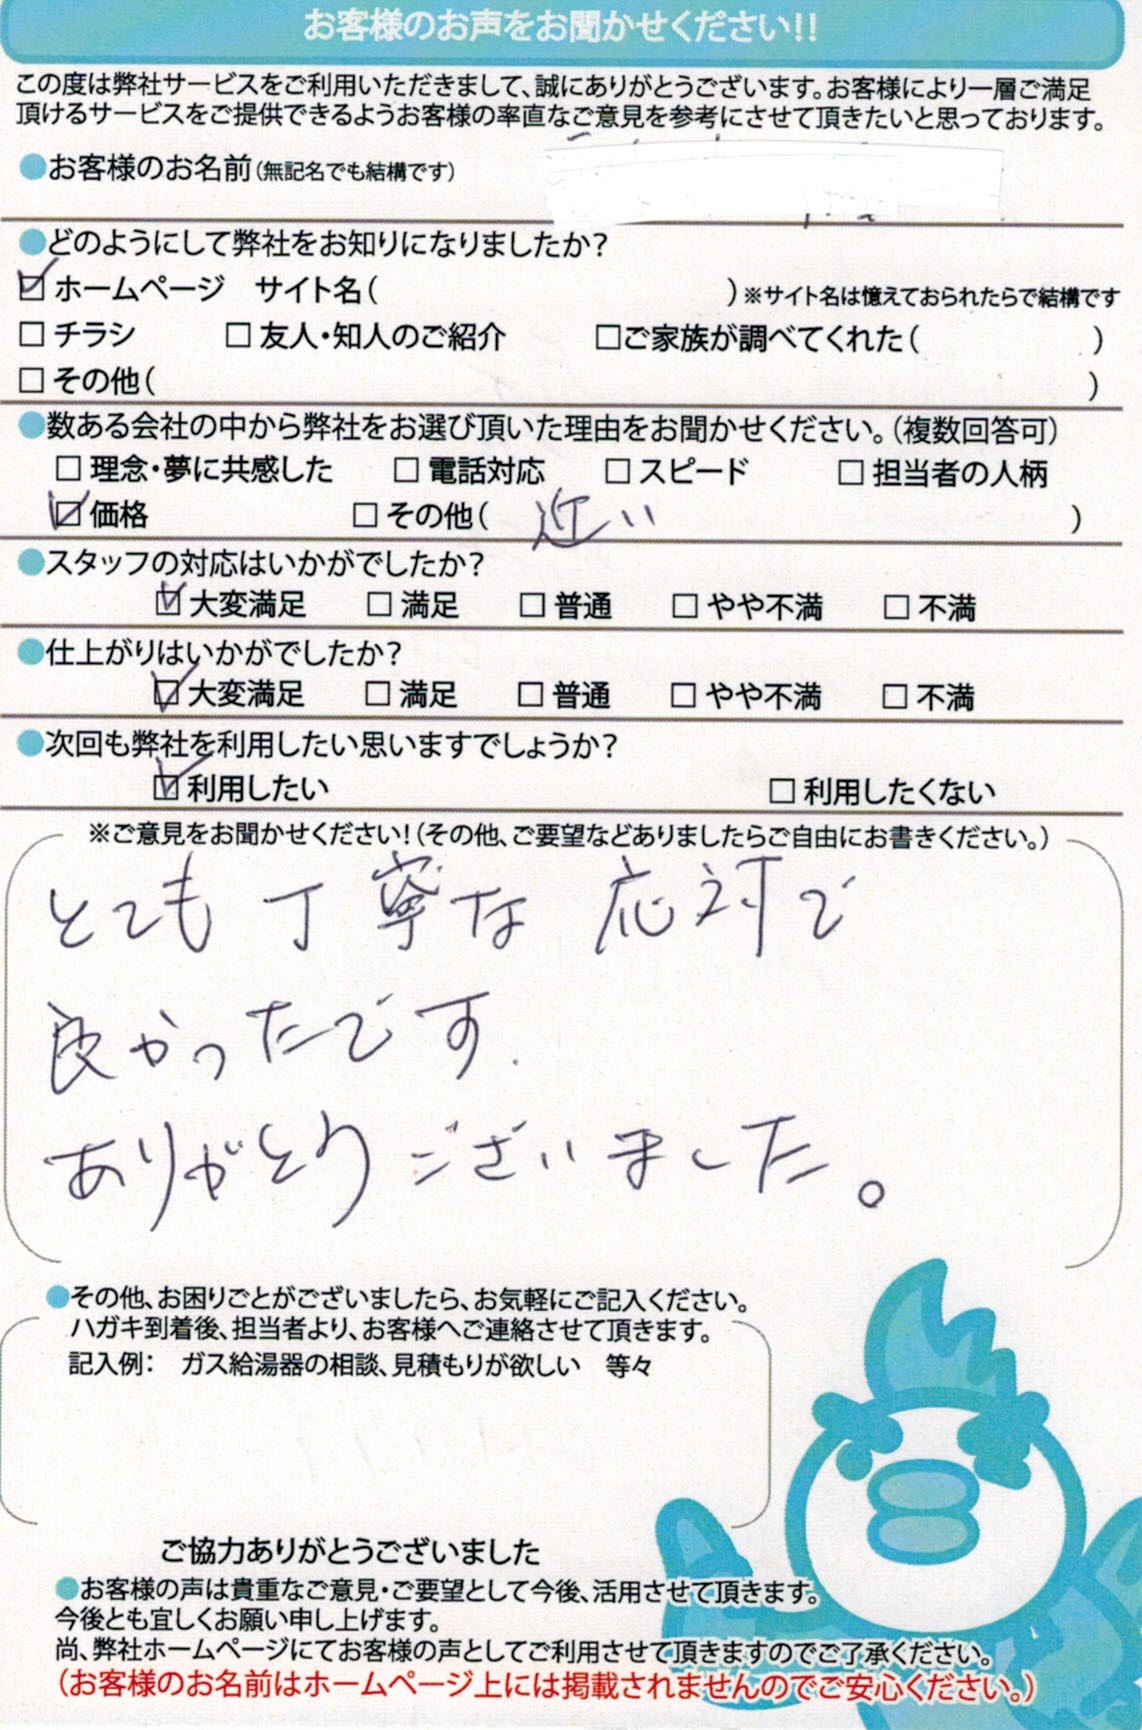 お客様のお声をお聞かせください!!
この度は弊社サービスをご利用いただきまして、誠にありがとうございます。お客様により一層ご満足
頂けるサービスをご提供できるようお客様の率直なご意見を参考にさせて頂きたいと思っております。
●お客様のお名前(無記名でも結構です)
●どのようにして弊社をお知りになりましたか?
☑ ホームページ サイト名( )※サイト名は憶えておられたらで結構です
□ チラシ □ 友人・知人のご紹介 □ご家族が調べてくれた( )
□ その他( )
●数ある会社の中から弊社をお選び頂いた理由をお聞かせください。(複数回答可)
□ 理念・夢に共感した □ 電話対応 □ スピード □ 担当者の人柄
☑ 価格 □ その他( 近い )
●スタッフの対応はいかがでしたか?
☑ 大変満足 □ 満足 □ 普通 □ やや不満 □ 不満
●仕上がりはいかがでしたか?
☑ 大変満足 □ 満足 □ 普通 □ やや不満 □ 不満
●次回も弊社を利用したい思いますでしょうか?
☑ 利用したい □ 利用したくない
※ご意見をお聞かせください!(その他、ご要望などありましたらご自由にお書きください。)
とても丁寧な応対で
良かったです.
ありがとうございました。
●その他、お困りごとがございましたら、お気軽にご記入ください。
ハガキ到着後、担当者より、お客様へご連絡させて頂きます。
記入例: ガス給湯器の相談、見積もりが欲しい 等々
ご協力ありがとうございました
●お客様の声は貴重なご意見・ご要望として今後、活用させて頂きます。
今後とも宜しくお願い申し上げます。
尚、弊社ホームページにてお客様の声としてご利用させて頂きますのでご了承ください。
(お客様のお名前はホームページ上には掲載されませんのでご安心ください。)